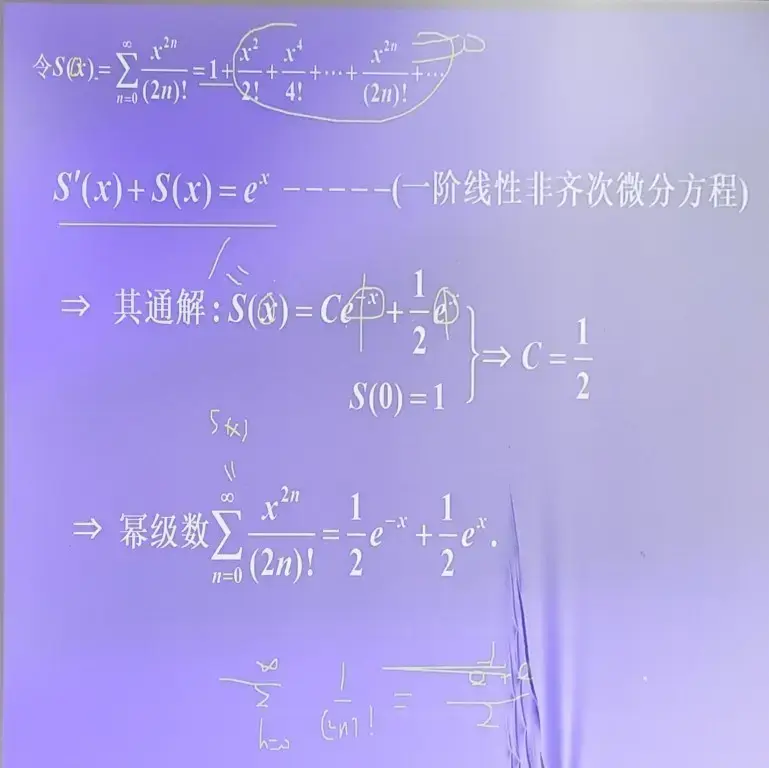 令S(x)=∑_{n=0}^{∞} x^{2n}/(2n)! = 1 + x^2/2! + x^4/4! + ⋯ + x^{2n}/(2n)! + ⋯
S′(x)+S(x)=e^x -----(一阶线性非齐次微分方程)
⇒ 其通解:S(x)=Ce^{-x}+1/2 e^x
S(0)=1 } ⇒ C=1/2
S(x)
=
⇒ 幂级数∑_{n=0}^{∞} x^{2n}/(2n)! = 1/2 e^{-x} + 1/2 e^x.
∑_{n=0}^{∞} 1/(2n)! =